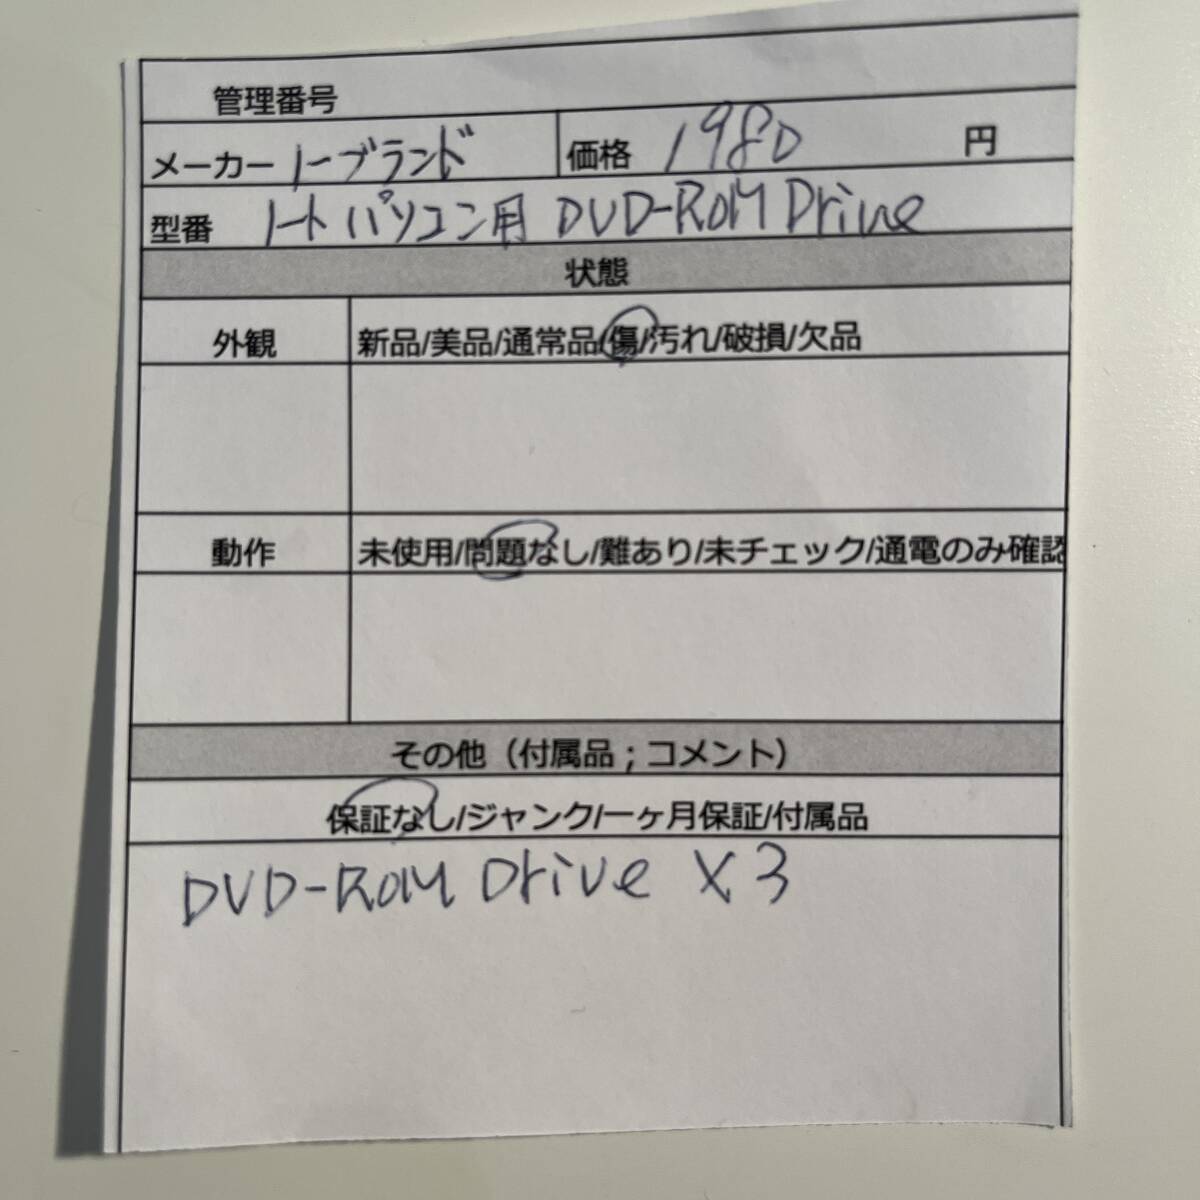 管理番号
メーカー ノーブランド 価格 1980 円
型番 ノートパソコン用 DVD-ROM Drive
状態
外観 新品/美品/通常品/傷/汚れ/破損/欠品
動作 未使用/問題なし/難あり/未チェック/通電のみ確認
その他（付属品；コメント）
保証なし/ジャンク/一ヶ月保証/付属品
DVD-ROM Drive X3